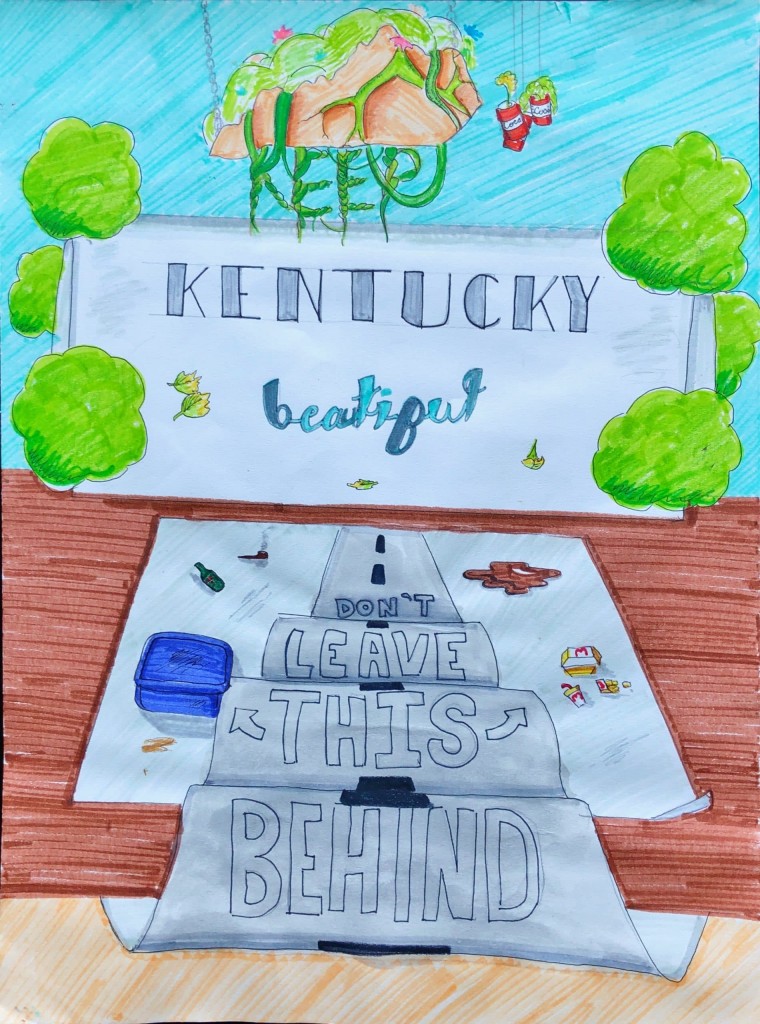 KEEP
KENTUCKY
beatiful
DON'T
LEAVE
M
THIS
BEHIND